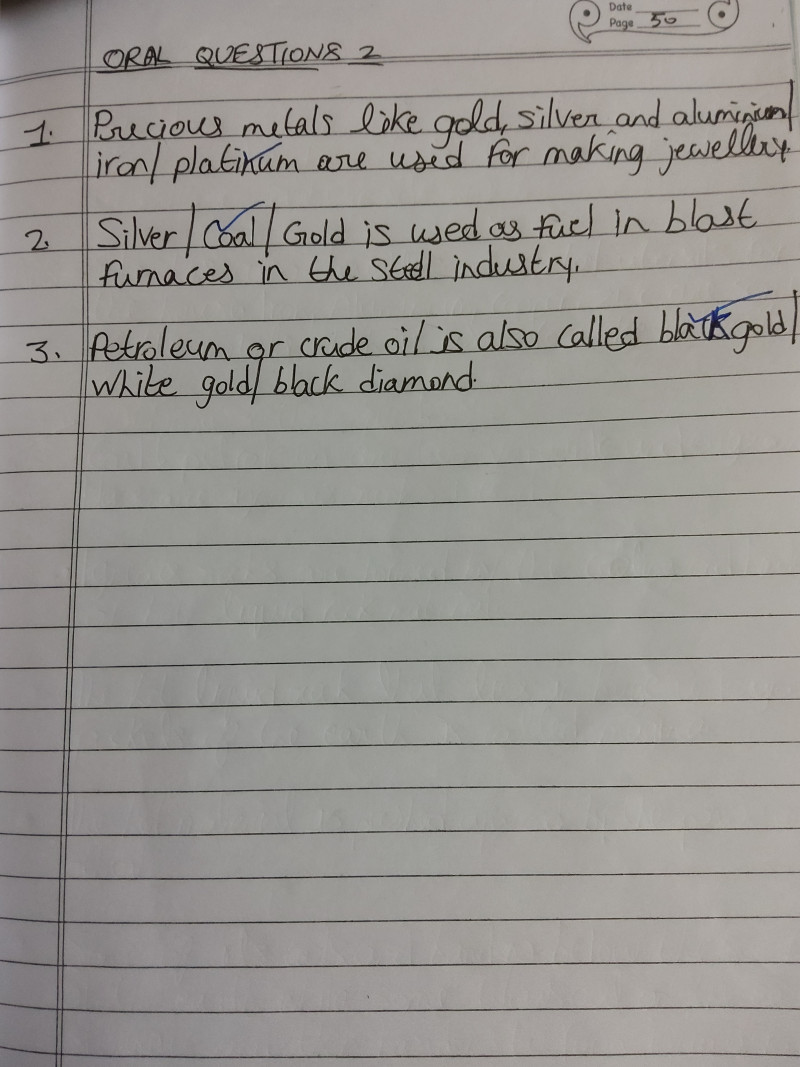 Date
Page 50
ORAL QUESTIONS 2
1. Precious metals like gold, silver and aluminium/
iron/ platinum are used for making jewellery.
2. Silver/Coal/Gold is used as fuel in blast
furnaces in the steel industry.
3. Petroleum or crude oil is also called black gold/
White gold/ black diamond.